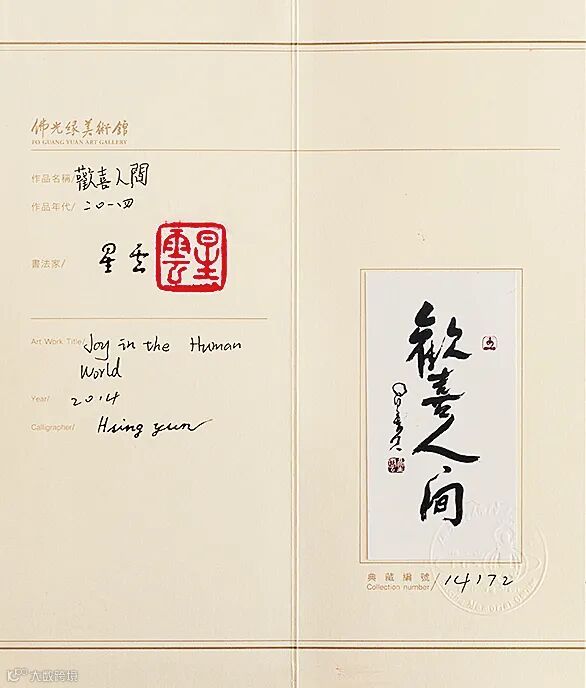 佛光緣美術館
FO GUANG YUAN ART GALLERY
作品名稱/歡喜人間
作品年代/二〇一四
書法家/ 星雲
星雲
Art Work Title/Joy in the Human
World
Year/ 2014
Calligrapher/ Hsing yun
歡喜人间
典藏編號/14172
Collection number/
大数跨境